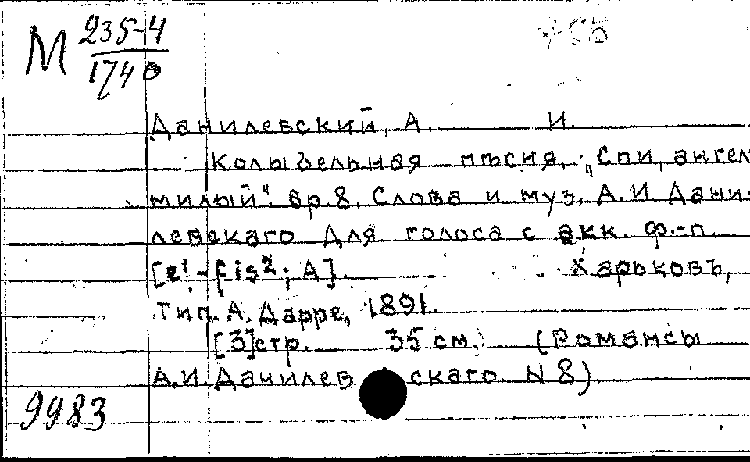 М 235-4
1740
Данилевский, А. И.
Колыбельная пѣсня. „Спи, ангел
милый". ор.8. Слова и муз. А.И. Дани-
левскаго Для голоса с акк. ф.-п.
[e¹-fis²; A]. Харьковъ,
Тип. А. Дарре, 1891.
[3]стр. 35 см. (Романсы
А.И. Данилевскаго N 8)
9983